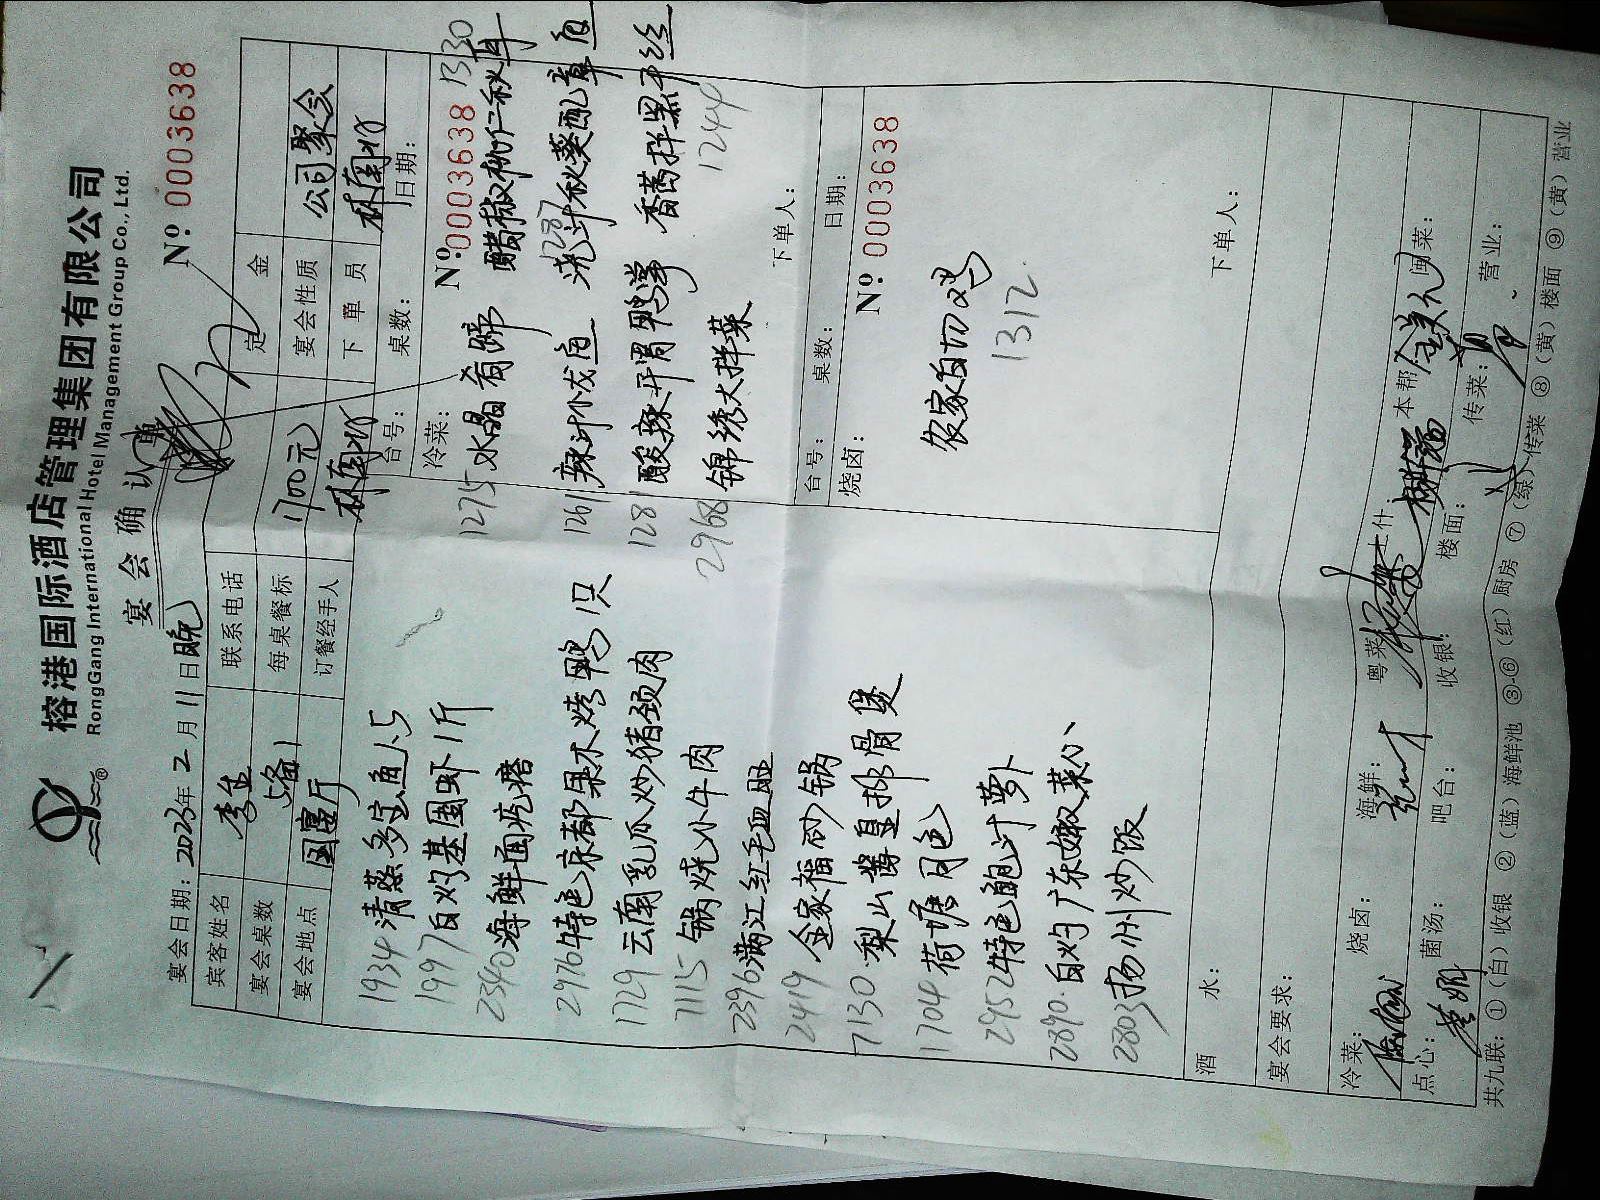 榕港国际酒店管理集团有限公司
RongGang International Hotel Management Group Co., Ltd.
宴会确认单
宴会日期: 2023年2月11日晚
Nº 0003638
宾客姓名 李生 联系电话 定金
宴会桌数 5备1 每桌餐标 1700元 宴会性质 公司聚会
宴会地点 国宴厅 订餐经手人 下单员
1934 清蒸多宝鱼1.5
1997 白灼基围虾1斤
2340 海鲜通疙瘩
2976 特色京都果木烤鸭1只
1729 云南乳瓜炒猪颈肉
7115 锅烧小牛肉
2396 满江红毛血旺
2419 全家福砂锅
7130 梨山酱皇排骨煲
1704 荷塘月色
2952 特色鲍汁萝卜
2890 白灼广东嫩菜心
2803 扬州炒饭
台号: 桌数: 日期:
冷菜: Nº 0003638
1275 水晶肴蹄 醋椒桃仁秋耳 1330
1261 辣汁小龙鱼 浇汁秋葵配章鱼 1287
1281 酸辣开胃鸭掌 香茜拌黑千丝 1244
2968 锦绣大拌菜
下单人:
台号: 桌数: 日期:
烧卤: Nº 0003638
农家白切鸡
1312
下单人:
酒水:
宴会要求:
冷菜: 烧卤: 海鲜: 粤菜: 上什: 本帮: 闽菜:
点心: 菌汤: 吧台: 收银: 楼面: 传菜: 营业:
共九联: ①(白)收银 ②(蓝)海鲜池 ③-⑥(红)厨房 ⑦(绿)传菜 ⑧(黄)楼面 ⑨(黄)营业